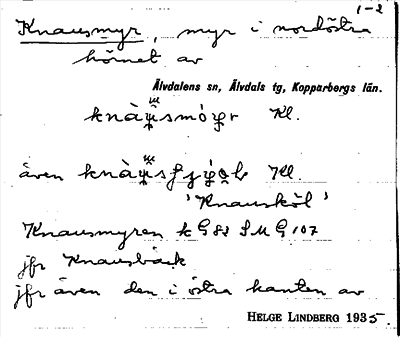 1-2
Knausmyr, myr i nordöstra
hörnet av
Älvdalens sn, Älvdals tg, Kopparbergs län.
Kl.
även Kl.
'Knausköl'
Knausmyren k G 82 S M G 107
jfr Knausbäck
jfr även den i östra kanten av
HELGE LINDBERG 1935.